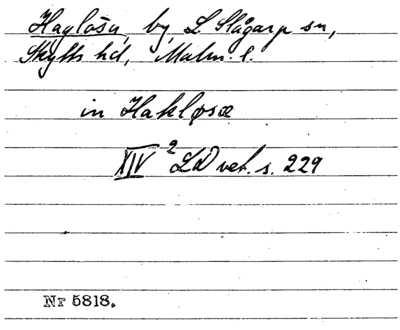 Haglösa, by, L Slågarp sn,
Skytts hd, Malm. l.
in Hakløsæ
XIV 2 LD vet. s. 229
Nr 5818.